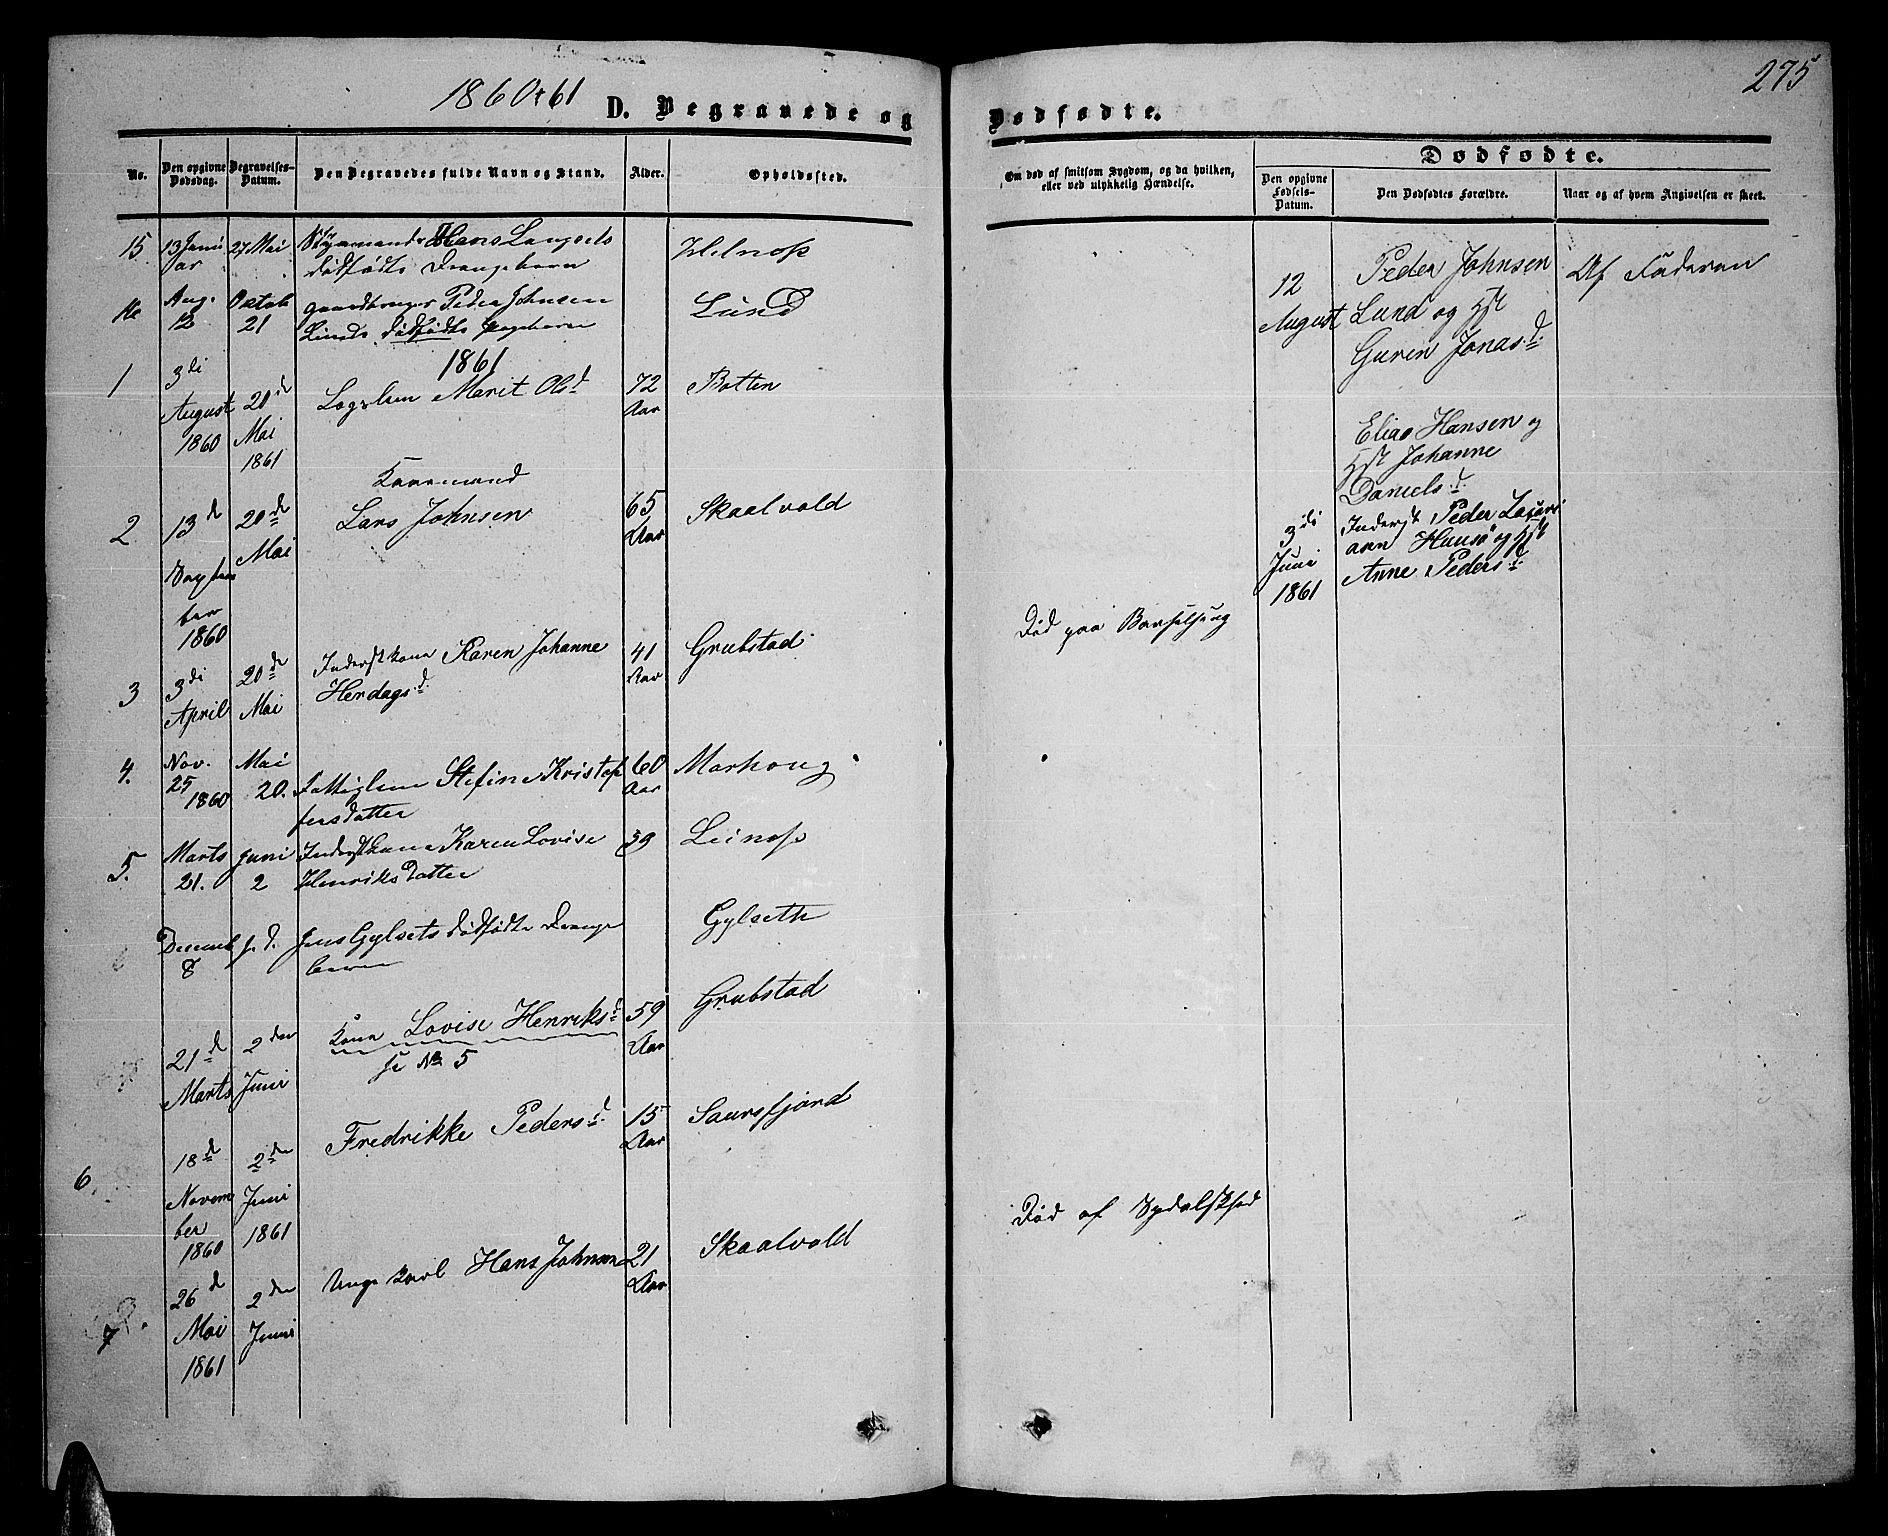 1860 & 61
D. Begravede og
No.
Den opgivne Dødsdag.
Begravelses-Datum.
Den Begravedes fulde Navn og Stand.
Alder.
Opholdssted.
15. 13 Janu 27 Mai Hans Langsets
ar dødfødte Drengebarn
Aug. Oktob gaardbruger Peder Johnsen Lund
12 21 Lunds dødfødte
1861
1 3di
August 20de Marit Olsd 72 Botten
1860 Mai Aar
1861
Kaarmand
2 13d 20de Lars Johnsen 65 Skaalvold
Mai Aar
ber
1860
3 3di 20de Inderstkone Karen Johanne 41 Grubstad
April Mai Herdagsd. Aar
4. Nov. Mai
25 20. Stefine Kristof 60 Morhoug
1860 fersdatter Aar
5. Marts Juni Inderstkone Karen Lovise 59 Leinos
21. 2 Henriksdatter
Decemb s. d. Jens Gylsets dødfødte Drenge Gylseth
8 barn
Kone Lovise Henriksd 59 Grubstad
21d 2den se No 5 Aar
Marts Juni
Fredrikke Pedersd. 15 Saursfjord
6. 18d 2den Aar
Novem Juni
ber 1861
1860
Unge karl Hans Johnsen 21 Skaalvold
7 26d 2den Aar
Mai Juni
1861
275
Dødfødte.
Om død af smitsom Sygdom, og da hvilken,
eller ved ulykkelig Hændelse.
Dødfødte.
Den opgivne
Fødsels-
Datum.
Den Dødfødtes Forældre.
Naar og af hvem Angivelsen er skeet.
12 Peder Johnsen Af Faderen
August Lund og Hst
Guren Jonasd.
Elias Hansen og
Hst Johanne
Danielsd.
3di Inderst Peder Lasari
Juni asen og Hst
1861 Anne Pedersd.
Død paa Barselseng
Død af